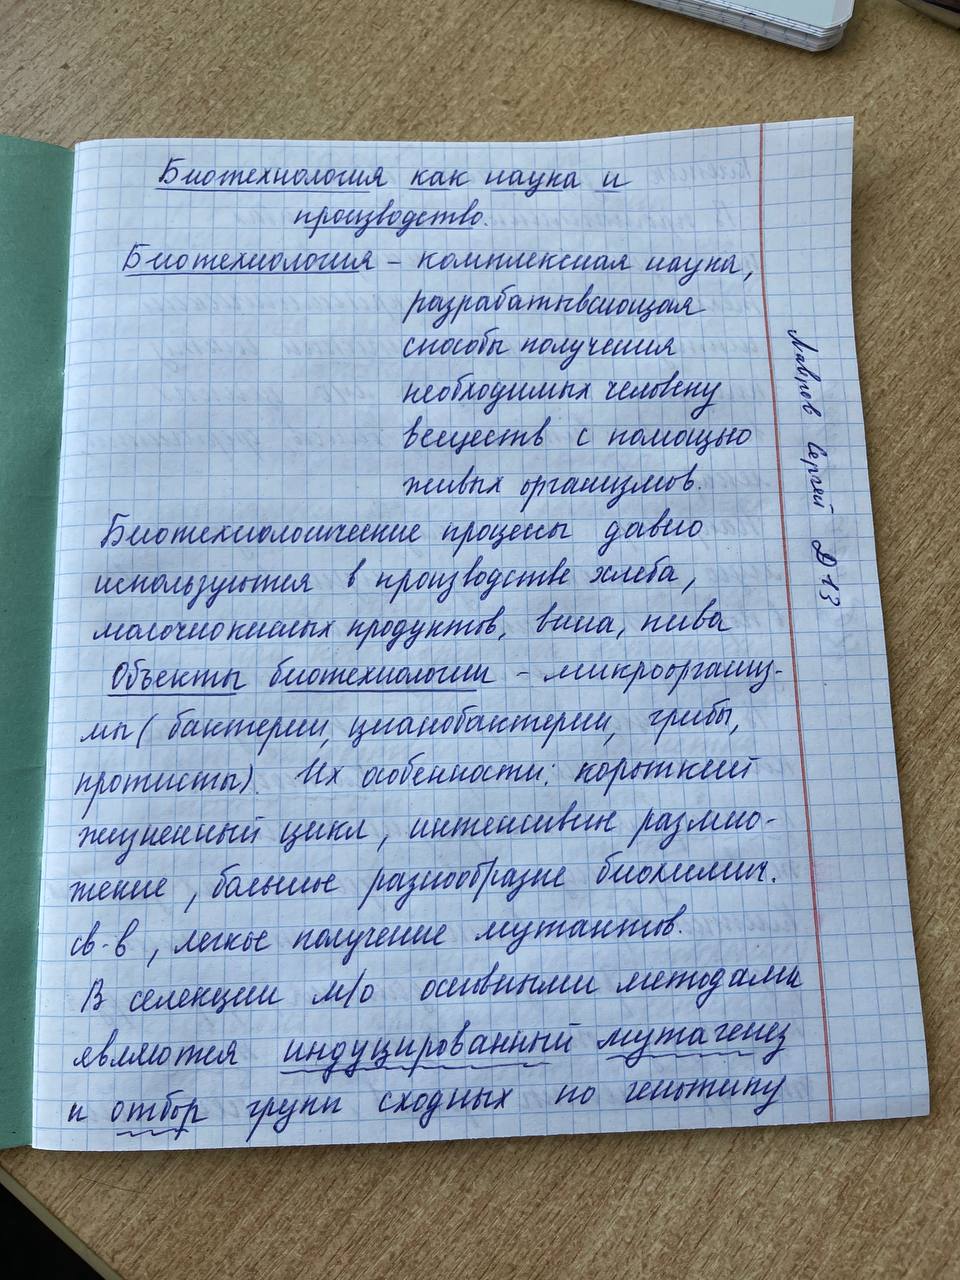 Биотехнология как наука и
производство.
Биотехнология - комплексная наука,
разрабатывающая
способы получения
необходимых человеку
веществ с помощью
живых организмов.
Биотехнологические процессы давно
используются в производстве хлеба,
молочнокислых продуктов, вина, пива
Объекты биотехнологии - микроорганиз-
мы (бактерии, цианобактерии, грибы,
протисты). Их особенности: короткий
жизненный цикл, интенсивн размно-
жение, большое разнообразие биохимич.
св-в, легкое получение мутантов.
В селекции м/о основными методами
являются индуцированный мутагенез
и отбор групп сходных по генотипу
Лавров Сергей Д13